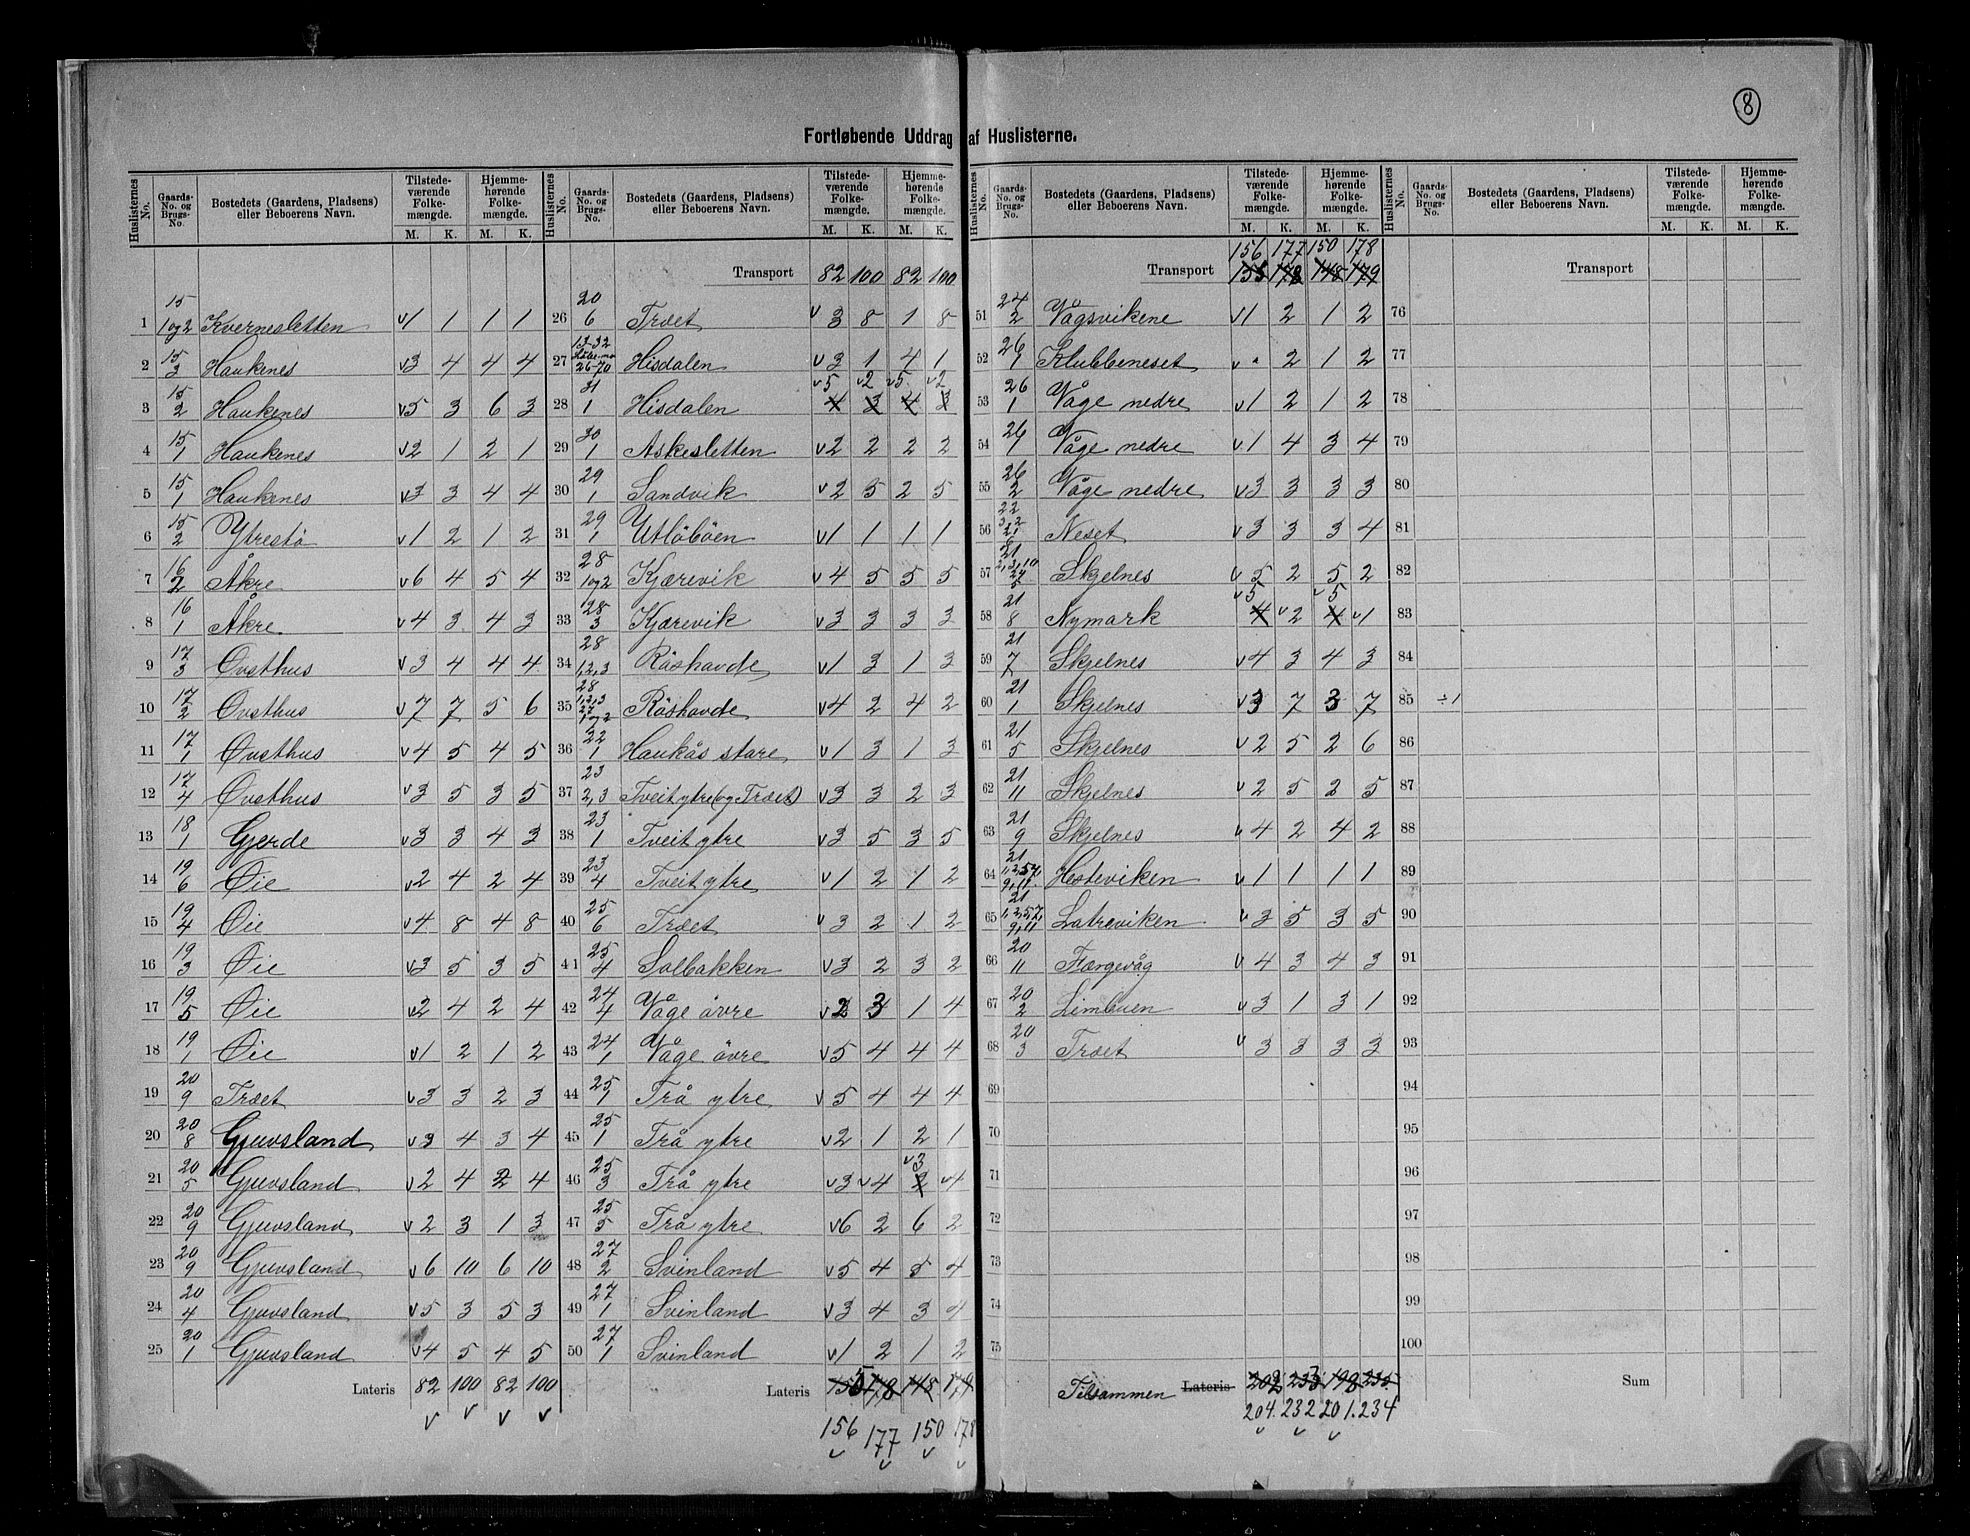 8
Fortløbende Uddrag af Huslisterne.
Huslisternes No. Gaards-No. og Brugs-No. Bostedets (Gaardens, Pladsens) eller Beboerens Navn. Tilstedeværende Folkemængde. M. K. Hjemmehørende Folkemængde. M. K.
1 15 1og2 Kvernesletten v1 1 1 1
2 15 3 Haukenes v3 4 4 4
3 15 2 Haukenes v5 3 6 3
4 15 1 Haukenes v2 1 2 1
5 15 1 Haukenes v3 3 4 4
6 15 2 Ytrestö v1 2 1 2
7 16 2 Åkre v6 4 5 4
8 16 1 Åkre v4 3 4 3
9 17 3 Øvsthus v3 4 4 4
10 17 2 Øvsthus v7 7 5 6
11 17 1 Øvsthus v4 5 4 5
12 17 4 Øvsthus v3 5 3 5
13 18 1 Gjerde v3 3 4 3
14 19 6 Øie v2 4 2 4
15 19 4 Øie v4 8 4 8
16 19 3 Øie v3 5 3 5
17 19 5 Øie v2 4 2 4
18 19 1 Øie v1 2 1 2
19 20 9 Træet v3 3 2 3
20 20 8 Gjuvsland v3 4 3 4
21 20 5 Gjuvsland v2 4 2 4
22 20 9 Gjuvsland v2 3 1 3
23 20 9 Gjuvsland v6 10 6 10
24 20 4 Gjuvsland v5 3 5 3
25 20 1 Gjuvsland v4 5 4 5
Lateris 82 100 82 100
v v v v
Huslisternes No. Gaards-No. og Brugs-No. Bostedets (Gaardens, Pladsens) eller Beboerens Navn. Tilstedeværende Folkemængde. M. K. Hjemmehørende Folkemængde. M. K.
Transport 82 100 82 100
26 20 6 Træet v3 8 1 8
27 13-32 26-70 Hisdalen v3 1 4 1
v5 v2 v5 v2
28 31 1 Hisdalen 4 3 4 3
29 30 1 Askesletten v2 2 2 2
30 29 1 Sandvik v2 5 2 5
31 29 1 Utlöböen v1 1 1 1
32 28 1og2 Kjærevik v4 5 5 5
33 28 3 Kjærevik v3 3 3 3
34 28 1,2,3 Röshavde v1 3 1 3
35 28 1,2,3 27 1og2 Röshovde v4 2 4 2
36 22 1 Haukås store v1 3 1 3
37 23 2,3 Tveit ytre (og Træet) v3 3 2 3
38 23 1 Tveit ytre v3 5 3 5
39 23 4 Tveit ytre v1 2 1 2
40 25 6 Træet v3 2 1 2
41 25 4 Solbakken v3 2 3 2
42 24 4 Våge övre v2 3 1 4
43 24 1 Våge övre v5 4 4 4
44 25 1 Trå ytre v5 4 4 4
45 25 1 Trå ytre v2 1 2 1
v3
46 25 3 Trå ytre v3 v4 2 v4
47 25 5 Trå ytre v6 2 6 2
48 27 2 Svinland v5 4 5 4
49 27 1 Svinland v3 4 3 4
50 27 1 Svinland v1 2 1 2
Lateris 155 178 148 179
156 177 150 178
v v v v
Huslisternes No. Gaards-No. og Brugs-No. Bostedets (Gaardens, Pladsens) eller Beboerens Navn. Tilstedeværende Folkemængde. M. K. Hjemmehørende Folkemængde. M. K.
156 177 150 178
Transport 155 178 148 179
51 24 2 Vågsvikene v1 2 1 2
52 26 1 Klubbeneset v • 2 1 2
53 26 1 Våge nedre v1 2 1 2
54 26 1 Våge nedre v1 4 3 4
55 26 2 Våge nedre v3 3 3 3
56 22 3,2 21 6 Neset v3 3 3 4
57 21 2,3,10 24 5 Skjelnes v5 2 5 2
v5 v5
58 21 8 Nymark 4 v2 4 v1
59 21 7 Skjelnes v4 3 4 3
60 21 1 Skjelnes v3 7 3 7
61 21 5 Skjelnes v2 5 2 6
62 21 11 Skjelnes v2 5 2 5
63 21 9 Skjelnes v4 2 4 2
64 21 1,2,5,7, 9,11 Hesteviken v1 1 1 1
65 21 1,2,5,7, 9,11 Latreviken v3 5 3 5
66 20 11 Færgevåg v4 3 4 3
67 20 2 Limbuen v3 1 3 1
68 20 3 Træet v3 3 3 3
69
70
71
72
73
74
75
Tilsammen Lateris 202 233 198 235
204. 232 201. 234
v v v
Huslisternes No. Gaards-No. og Brugs-No. Bostedets (Gaardens, Pladsens) eller Beboerens Navn. Tilstedeværende Folkemængde. M. K. Hjemmehørende Folkemængde. M. K.
Transport
76
77
78
79
80
81
82
83
84
85 ÷1
86
87
88
89
90
91
92
93
94
95
96
97
98
99
100
Sum